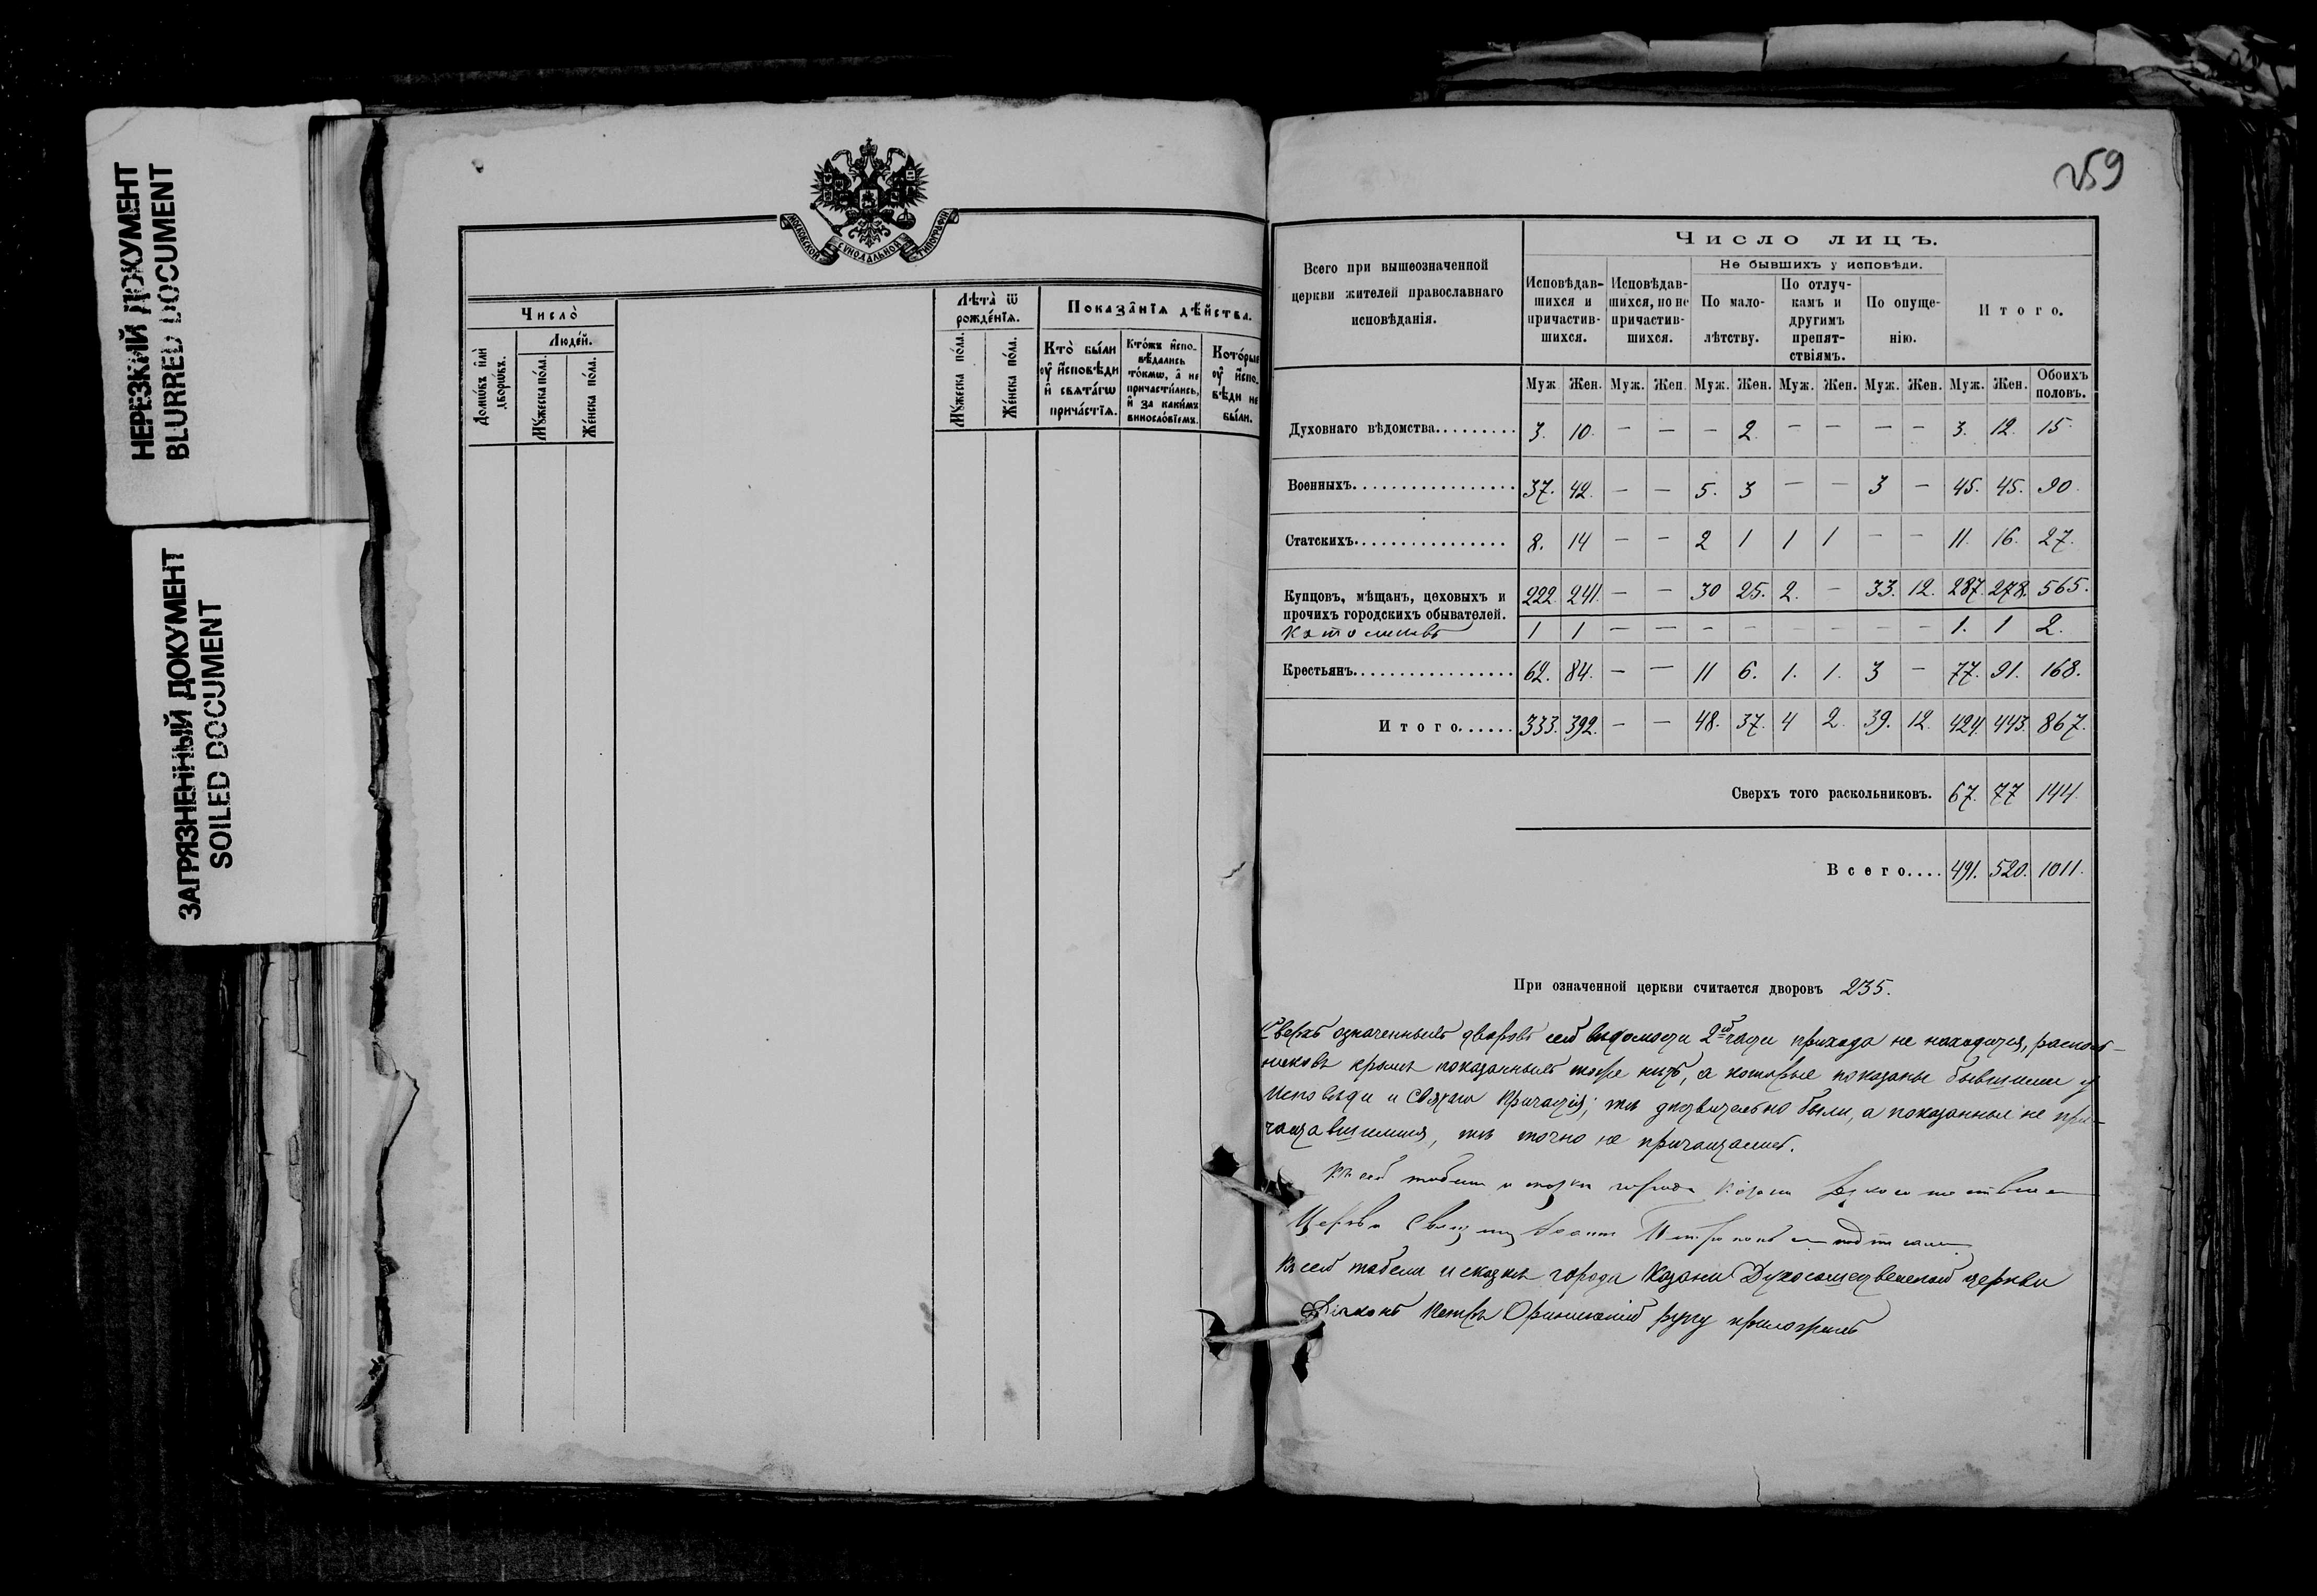 НЕРЕЗКИЙ ДОКУМЕНТ
BLURRED DOCUMENT
ЗАГРЯЗНЕННЫЙ ДОКУМЕНТ
SOILED DOCUMENT
МОСКОВСКОЙ СѴНОДАЛЬНОЙ ТИПОГРАФІИ
Число̀
Люде́й.
Домѡ́въ и҆лѝ дворѡ́въ.
Мꙋ́жеска по́ла.
Же́нска по́ла.
Лѣ́та ѿ рожде́нїѧ.
Мꙋ́жеска по́ла.
Же́нска по́ла.
Показа̑нїѧ дѣ́йства.
Кто̀ бы́ли ᲂу҆ и҆́сповѣди и҆ свѧта́гѡ прича́стїѧ.
Кто́жъ и҆сповѣ́дались то́кмѡ, а҆ не причасти́лись, и҆ за каки́мъ виносло́вїемъ.
Кото́рые ᲂу҆ и҆́сповѣди не бы́ли.
259
Всего при вышеозначенной
церкви жителей православнаго
исповѣданія.
Число лицъ.
Исповѣдав-
шихся и
причастив-
шихся.
Исповѣдав-
шихся, но не
причастив-
шихся.
Не бывшихъ у исповѣди.
По мало-
лѣтству.
По отлуч-
камъ и
другимъ
препят-
ствіямъ.
По опуще-
нію.
Итого.
Муж. Жен. Муж. Жен. Муж. Жен. Муж. Жен. Муж. Жен. Муж. Жен. Обоихъ половъ.
Духовнаго вѣдомства......... 3. 10. — — — 2. — — — — 3. 12. 15.
Военныхъ.................. 37. 42. — — 5. 3 — — 3 — 45. 45. 90.
Статскихъ................. 8. 14 — — 2 1 1 1 — — 11. 16. 27.
Купцовъ, мѣщанъ, цеховыхъ и
прочихъ городскихъ обывателей. 222. 241. — — 30 25. 2. — 33. 12. 287. 278. 565.
Католиковъ 1 1 — — — — — — — — 1. 1 2.
Крестьянъ.................. 62. 84. — — 11 6. 1. 1. 3 — 77. 91. 168.
Итого...... 333. 392. — — 48. 37. 4 2. 39. 12. 424. 443. 867.
Сверхъ того раскольниковъ. 67. 77 144.
Всего.... 491. 520. 1011.
При означенной церкви считается дворовъ 235.
Сверхъ означенныхъ дворовъ сей вѣдомости 2ой части прихода не находится, расколь-
никовъ кромѣ показанныхъ тоже нѣтъ, а которые показаны бывшими у
Исповѣди и Святаго Причастія, тѣ дѣйствительно были, а показанные не при-
чащавшимися, тѣ точно не причащались.
Къ сей табели и сказкѣ города Казани
Церкви Священникъ подписался
Къ сей табели и сказкѣ города Казани Духосошественской церкви
Діаконъ Петръ руку приложилъ